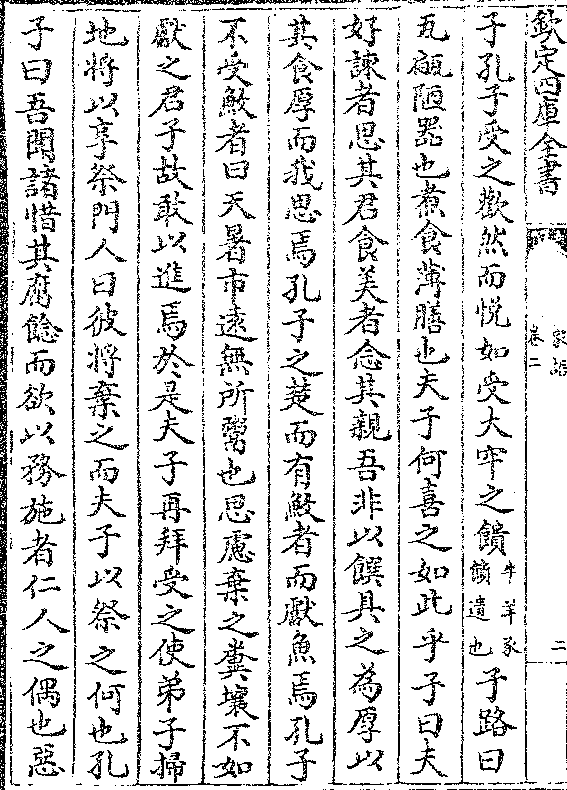 欽定四庫全書
家語
卷二
二
子孔子受之歡然而悅如受大牢之饋牛羊豕饋遺也子路曰
瓦甂陋器也煮食薄膳也夫子何喜之如此乎子曰夫
好諫者思其君食美者念其親吾非以饌具之為厚以
其食厚而我思焉孔子之楚而有鮫者而獻魚焉孔子
不受鮫者曰天暑市遠無所鬻也思慮棄之糞壤不如
獻之君子故敢以進焉於是夫子再拜受之使弟子掃
地將以享祭門人曰彼將棄之而夫子以祭之何也孔
子曰吾聞諸惜其腐餒而欲以務施者仁人之偶也惡